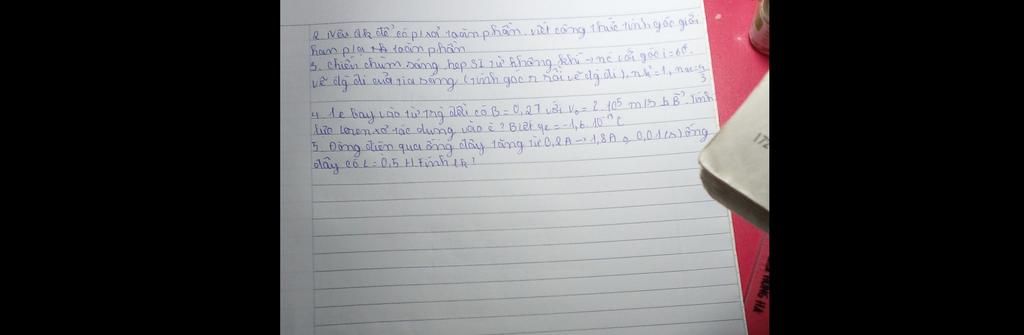 2. Nêu đk để có pl xạ toàn phần. viết công thức tính góc giới
hạn plạ toàn phần
3. chiếu chùm sáng hẹp SI từ không khí → nc với góc i = 60°.
vẽ đg đi của tia sáng (tính góc r rồi vẽ đg đi), nkk = 1, nnc = 4/3
4. 1 e bay vào từ trg đều có B = 0,2T với v₀ = 2.10⁵ m/s ⊥ B⃗. Tính
lực lorenxơ tác dụng vào e? Biết qe = -1,6.10⁻¹⁹ C
5. Dòng điện qua ống dây tăng từ 0,2A → 1,8A 0,01(s) ống
dây có L = 0,5 H. Tính
172